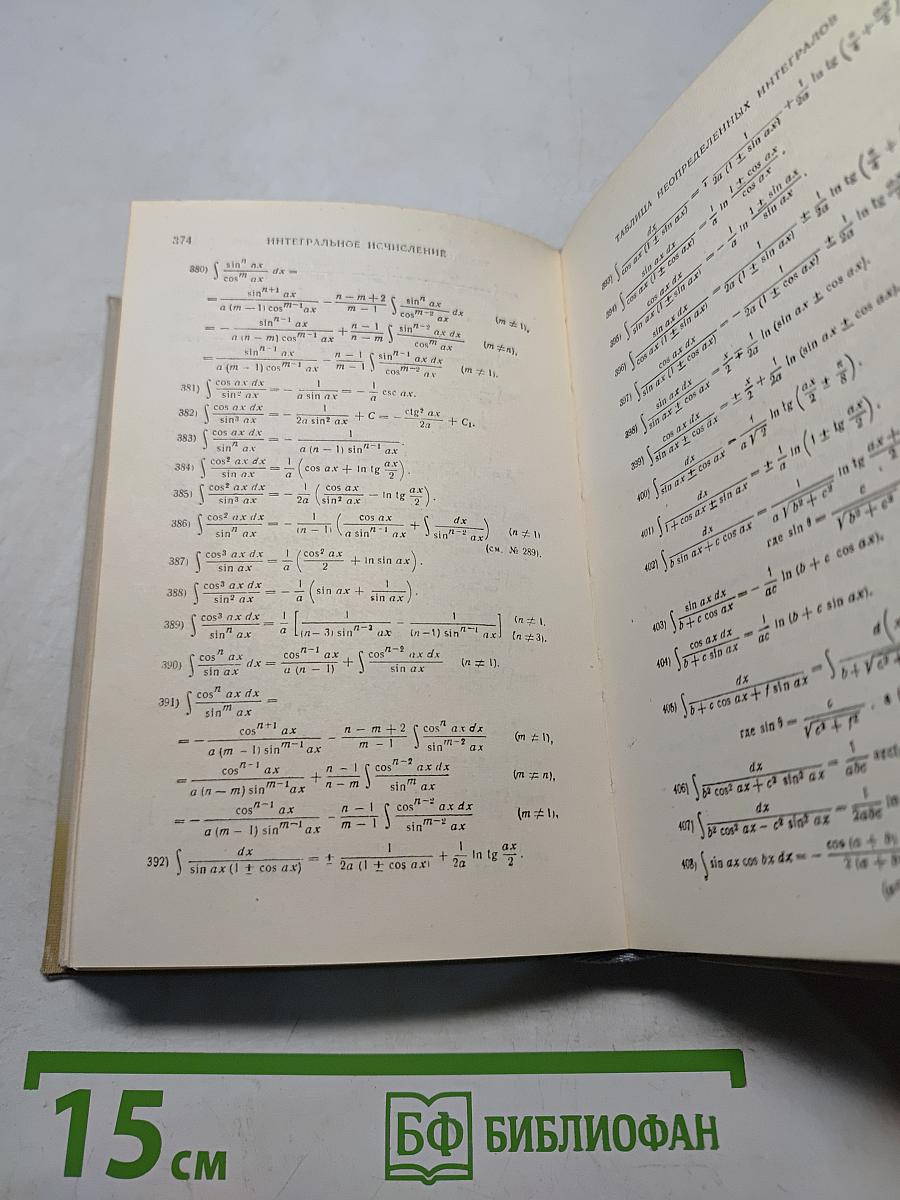 374
ИНТЕГРАЛЬНОЕ ИСЧИСЛЕНИЕ
380) ∫ sinⁿ ax / cosᵐ ax dx =
= sinⁿ⁺¹ ax / a (m − 1) cosᵐ⁻¹ ax − n − m + 2 / m − 1 ∫ sinⁿ ax / cosᵐ⁻² ax dx (m ≠ 1),
= − sinⁿ⁻¹ ax / a (n − m) cosᵐ⁻¹ ax + n − 1 / n − m ∫ sinⁿ⁻² ax dx / cosᵐ ax (m ≠ n),
= sinⁿ⁻¹ ax / a (m − 1) cosᵐ⁻¹ ax − n − 1 / m − 1 ∫ sinⁿ⁻¹ ax dx / cosᵐ⁻² ax (m ≠ 1).
381) ∫ cos ax dx / sin² ax = − 1 / a sin ax = − 1 / a csc ax.
382) ∫ cos ax dx / sin³ ax = − 1 / 2a sin² ax + C = − ctg² ax / 2a + C₁.
383) ∫ cos ax dx / sinⁿ ax = − 1 / a (n − 1) sinⁿ⁻¹ ax .
384) ∫ cos² ax dx / sin ax = 1 / a (cos ax + ln tg ax / 2).
385) ∫ cos² ax dx / sin³ ax = − 1 / 2a (cos ax / sin² ax − ln tg ax / 2).
386) ∫ cos² ax dx / sinⁿ ax = − 1 / (n − 1) (cos ax / a sinⁿ⁻¹ ax + ∫ dx / sinⁿ⁻² ax) (n ≠ 1)
(см. № 289).
387) ∫ cos³ ax dx / sin ax = 1 / a (cos² ax / 2 + ln sin ax).
388) ∫ cos³ ax dx / sin² ax = − 1 / a (sin ax + 1 / sin ax).
389) ∫ cos³ ax dx / sinⁿ ax = 1 / a [1 / (n − 3) sinⁿ⁻³ ax − 1 / (n − 1) sinⁿ⁻¹ ax] (n ≠ 1,
(n ≠ 3).
390) ∫ cosⁿ ax / sin ax dx = cosⁿ⁻¹ ax / a (n − 1) + ∫ cosⁿ⁻² ax dx / sin ax (n ≠ 1).
391) ∫ cosⁿ ax dx / sinᵐ ax =
= − cosⁿ⁺¹ ax / a (m − 1) sinᵐ⁻¹ ax − n − m + 2 / m − 1 ∫ cosⁿ ax dx / sinᵐ⁻² ax (m ≠ 1),
= cosⁿ⁻¹ ax / a (n − m) sinᵐ⁻¹ ax + n − 1 / n − m ∫ cosⁿ⁻² ax dx / sinᵐ ax (m ≠ n),
= − cosⁿ⁻¹ ax / a (m − 1) sinᵐ⁻¹ ax − n − 1 / m − 1 ∫ cosⁿ⁻² ax dx / sinᵐ⁻² ax (m ≠ 1),
392) ∫ dx / sin ax (1 ± cos ax) = ± 1 / 2a (1 ± cos ax) + 1 / 2a ln tg ax / 2 .
ТАБЛИЦА НЕОПРЕДЕЛЕННЫХ ИНТЕГРАЛОВ
393) ∫ dx / cos ax (1 ± sin ax) = ∓ 1 / 2a (1 ± sin ax) + 1 / 2a ln tg (π / 4 + ax / 2
394) ∫ sin ax dx / cos ax (1 ± cos ax) = 1 / a ln 1 ± cos ax / cos ax .
395) ∫ cos ax dx / sin ax (1 ± sin ax) = − 1 / a ln 1 ± sin ax / sin ax .
396) ∫ sin ax dx / cos ax (1 ± sin ax) = 1 / 2a (1 ± sin ax) ± 1 / 2a ln tg (π / 4 +
397) ∫ cos ax dx / sin ax (1 ± cos ax) = − 1 / 2a (1 ± cos ax) ± 1 / 2a ln tg ax
398) ∫ sin ax dx / sin ax ± cos ax = x / 2 ∓ 1 / 2a ln (sin ax ± cos ax).
399) ∫ cos ax dx / sin ax ± cos ax = ± x / 2 + 1 / 2a ln (sin ax ± cos ax).
400) ∫ dx / sin ax ± cos ax = 1 / a √2 ln tg (ax / 2 ± π / 8).
401) ∫ dx / 1 + cos ax ± sin ax = ± 1 / a ln (1 ± tg ax / 2).
402) ∫ dx / b sin ax + c cos ax = 1 / a √b² + c² ln tg ax +
где sin θ = c / √b² + c²
403) ∫ sin ax dx / b + c cos ax = − 1 / ac ln (b + c cos ax).
404) ∫ cos ax dx / b + c sin ax = 1 / ac ln (b + c sin ax).
405) ∫ dx / b + c cos ax + f sin ax = ∫ d (x / b + √c² +
где sin θ = c / √c² + f² ,
406) ∫ dx / b² cos² ax + c² sin² ax = 1 / abc
407) ∫ dx / b² cos² ax − c² sin² ax = 1 / 2abc ln
408) ∫ sin ax cos bx dx = − cos (a + b) / 2 (a + b)
15 см
БФ БИБЛИОФАН